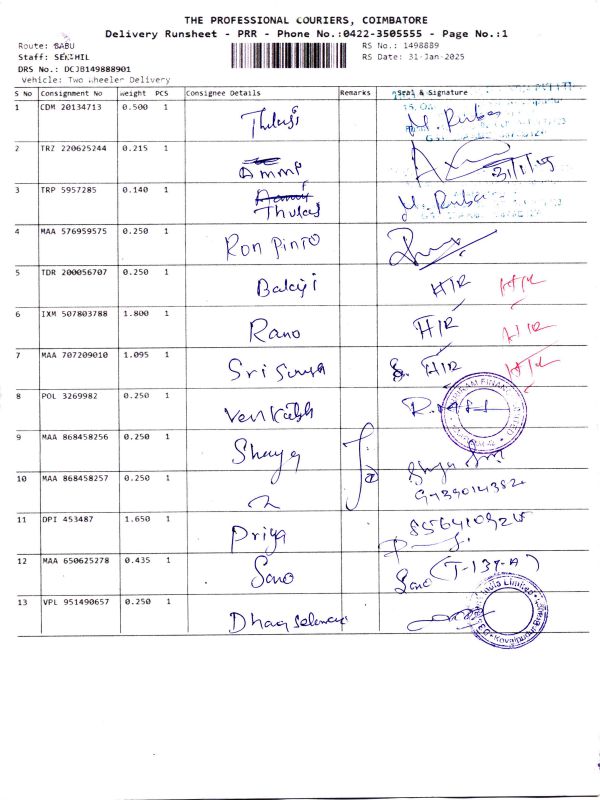 THE PROFESSIONAL COURIERS, COIMBATORE
Delivery Runsheet - PRR - Phone No.:0422-3505555 - Page No.:1
Route: BABU
RS No.: 1498889
Staff: SENTHIL
RS Date: 31-Jan-2025
DRS No.: DCJB149888901
Vehicle: Two Wheeler Delivery
S No Consignment No weight PCS Consignee Details Remarks Seal & Signature
1 CDM 20134713 0.500 1 Thulasi M. Ruba
2 TRZ 220625244 0.215 1 Ammi 31/1/25
3 TRP 5957285 0.140 1 Thulasi M. Ruba
4 MAA 576959575 0.250 1 Ron Pinto
5 TDR 200056707 0.250 1 Balaji H/R H/R
6 IXM 507803788 1.800 1 Rano H/R H/R
7 MAA 707209010 1.095 1 Sri H/R H/R
8 POL 3269982 0.250 1 Venkatsh
9 MAA 868458256 0.250 1 Shaya
10 MAA 868458257 0.250 1
11 DPI 453487 1.650 1 Priya
12 MAA 650625278 0.435 1 Sano Sano (T-137-A)
13 VPL 951490657 0.250 1